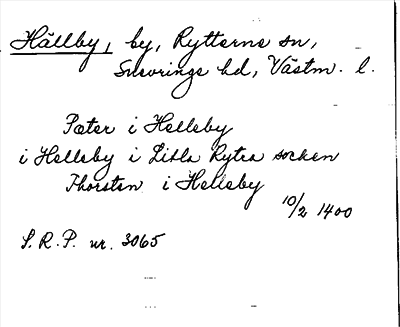 Hällby, by, Rytterne sn,
Snevringe hd, Västm. l.
Pæter i Helleby
i Helleby i Litla Rytra socken
Thorsten i Helleby
10/2 1400
S.R.P. nr. 3065